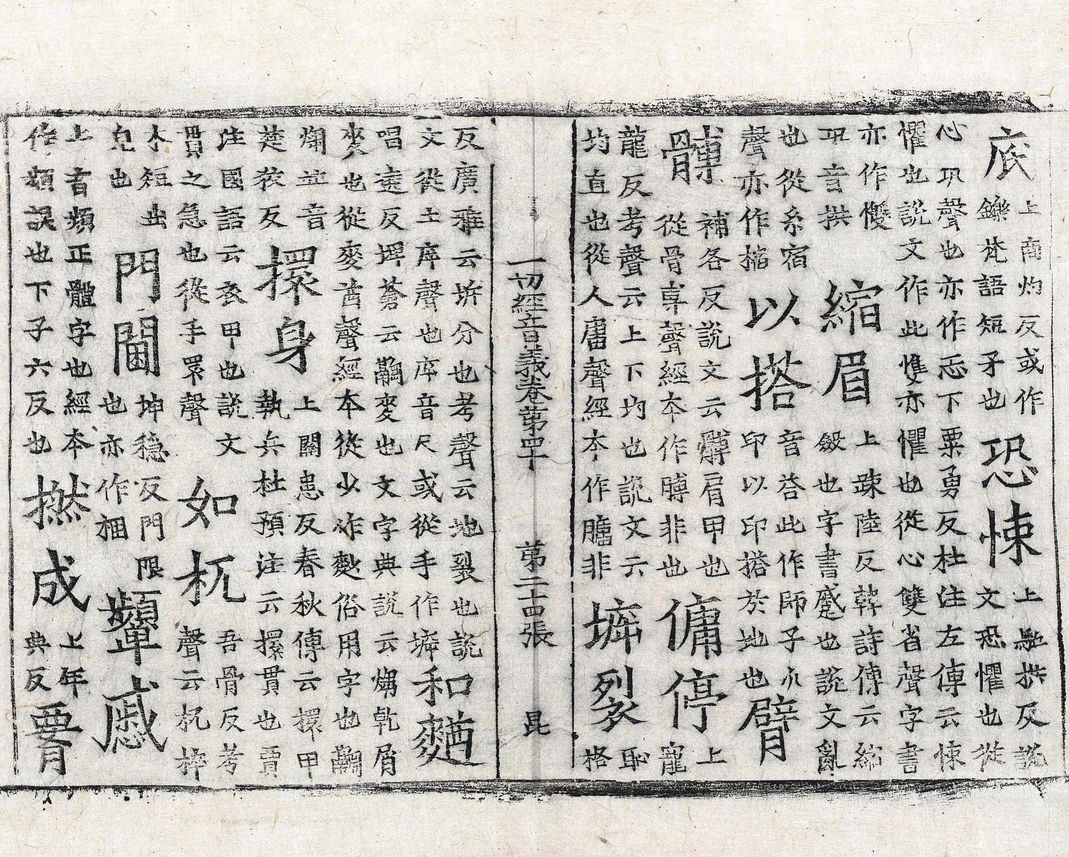 底
上商灼反或作
鑠梵語短矛也
恐悚
上龜拱反説
文恐懼也從
心巩聲也亦作忎下粟勇反杜注左傳云悚
懼也説文作此愯亦懼也從心雙省聲字書
亦作㥦
巩音拱
縮眉
上踈陸反韓詩傳云縮
斂也字書蹙也説文亂
也從糸宿
聲亦作摍
以搭
音荅此作師子爪
印以印搭於地也
臂
髆
補各反説文云髆肩甲也
從骨尃聲經本作膊非也
傭停
上
寵
龍反考聲云上下均也説文云
均直也從人庸聲經本作牗非
㙤裂
恥
格
一切經音義卷第四十 第二十四張 毘
反廣雅云㙤分也考聲云地裂也説
文從土㡿聲也㡿音尺或從手作㙤
和䴬
唱遠反埤蒼云䵅麥也文字典説云煼乾屑
麥也從麥酋聲經本從少作麨俗用字也䵅
煼並音
楚狡反
擐身
上關患反春秋傳云擐甲
執兵杜預注云擐貫也賈
注國語云衣甲也説文
貫之急也從手睘聲
如杌
吾骨反考
聲云杌椊
木短出
皃也
門閫
坤穩反門限
也亦作梱
顰戚
上音頻正體字也經本
作頻誤也下子六反也
撚成
上年
典反
膋